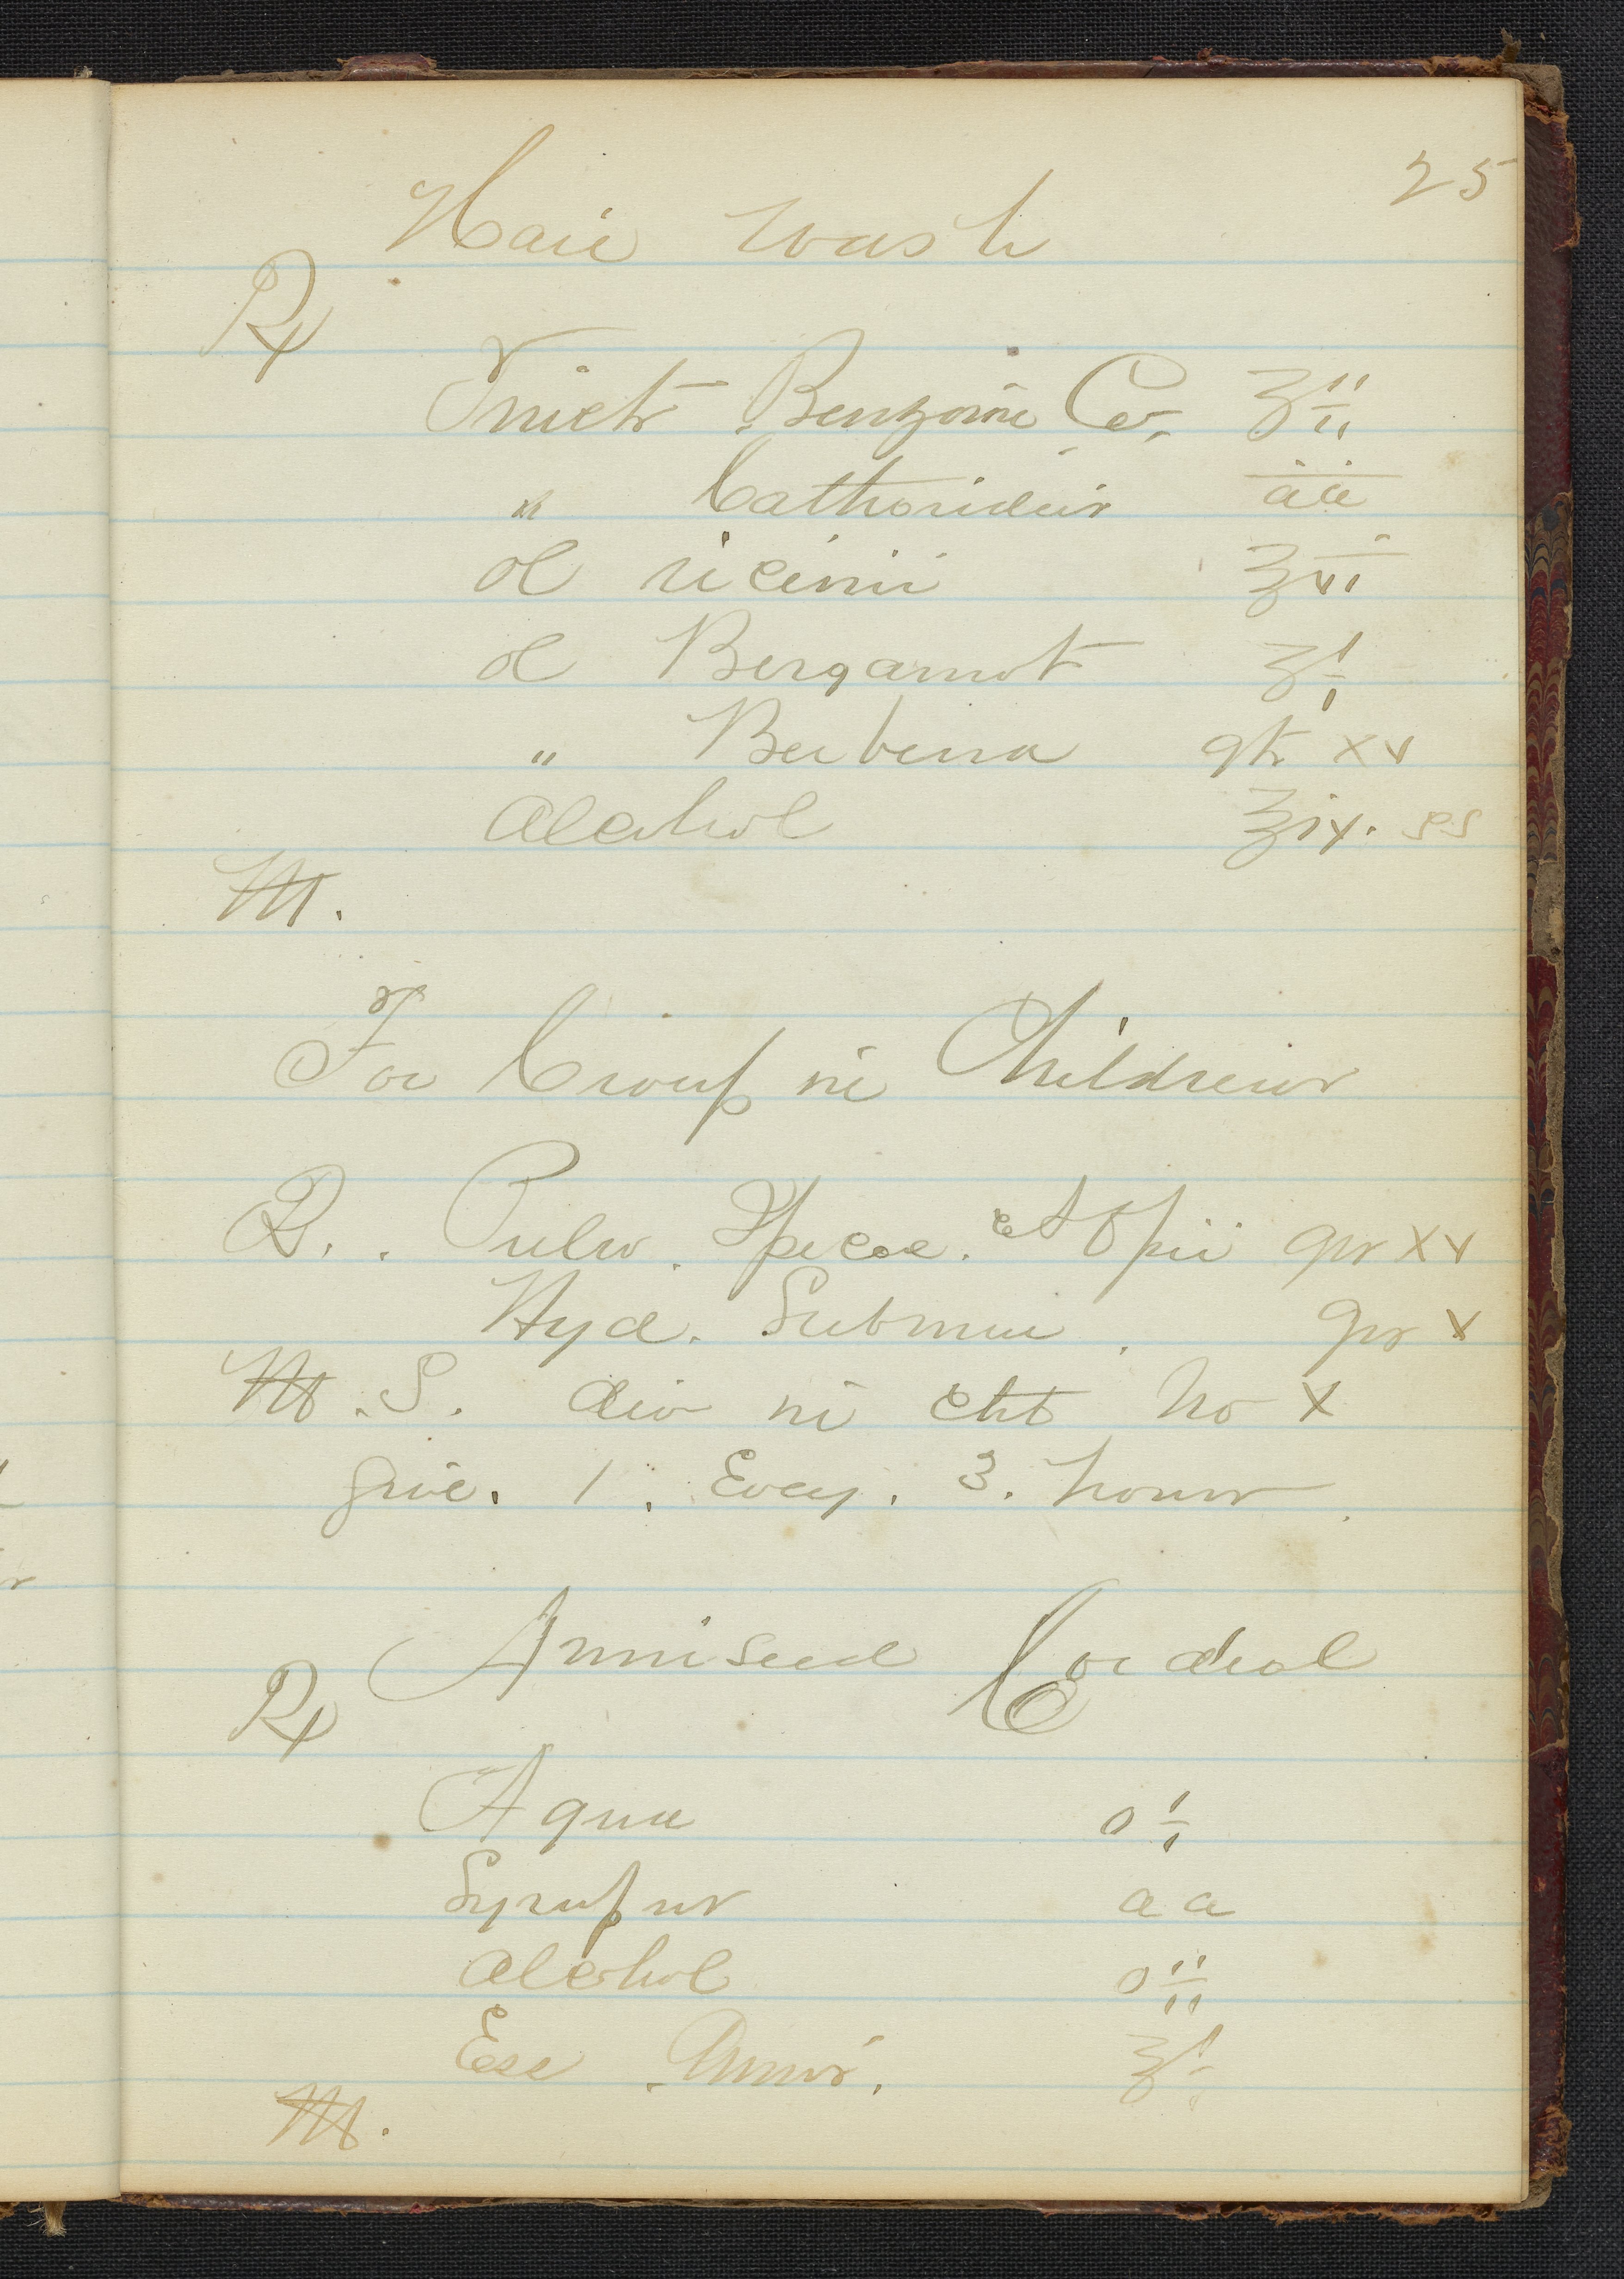 25
Hair wash
℞
Tinct Benzoini Co. ʒii
" Catharides āā
Ol ricinii ℥vi
Ol Bergamot ʒi
" Berbena gtt xv
Alcohol ℥ix. ss
M.
For Croup in Children
℞. Pulv. Ipecac. et Opii grs xv
Hyd. Submur. grs x
M. S. div in cht No x
give. 1. Every. 3. hours.
Anniseed Cordial
℞
Aqua O i
Syrupus aa
Alcohol O ii
Ess. Annis. ʒi
M.